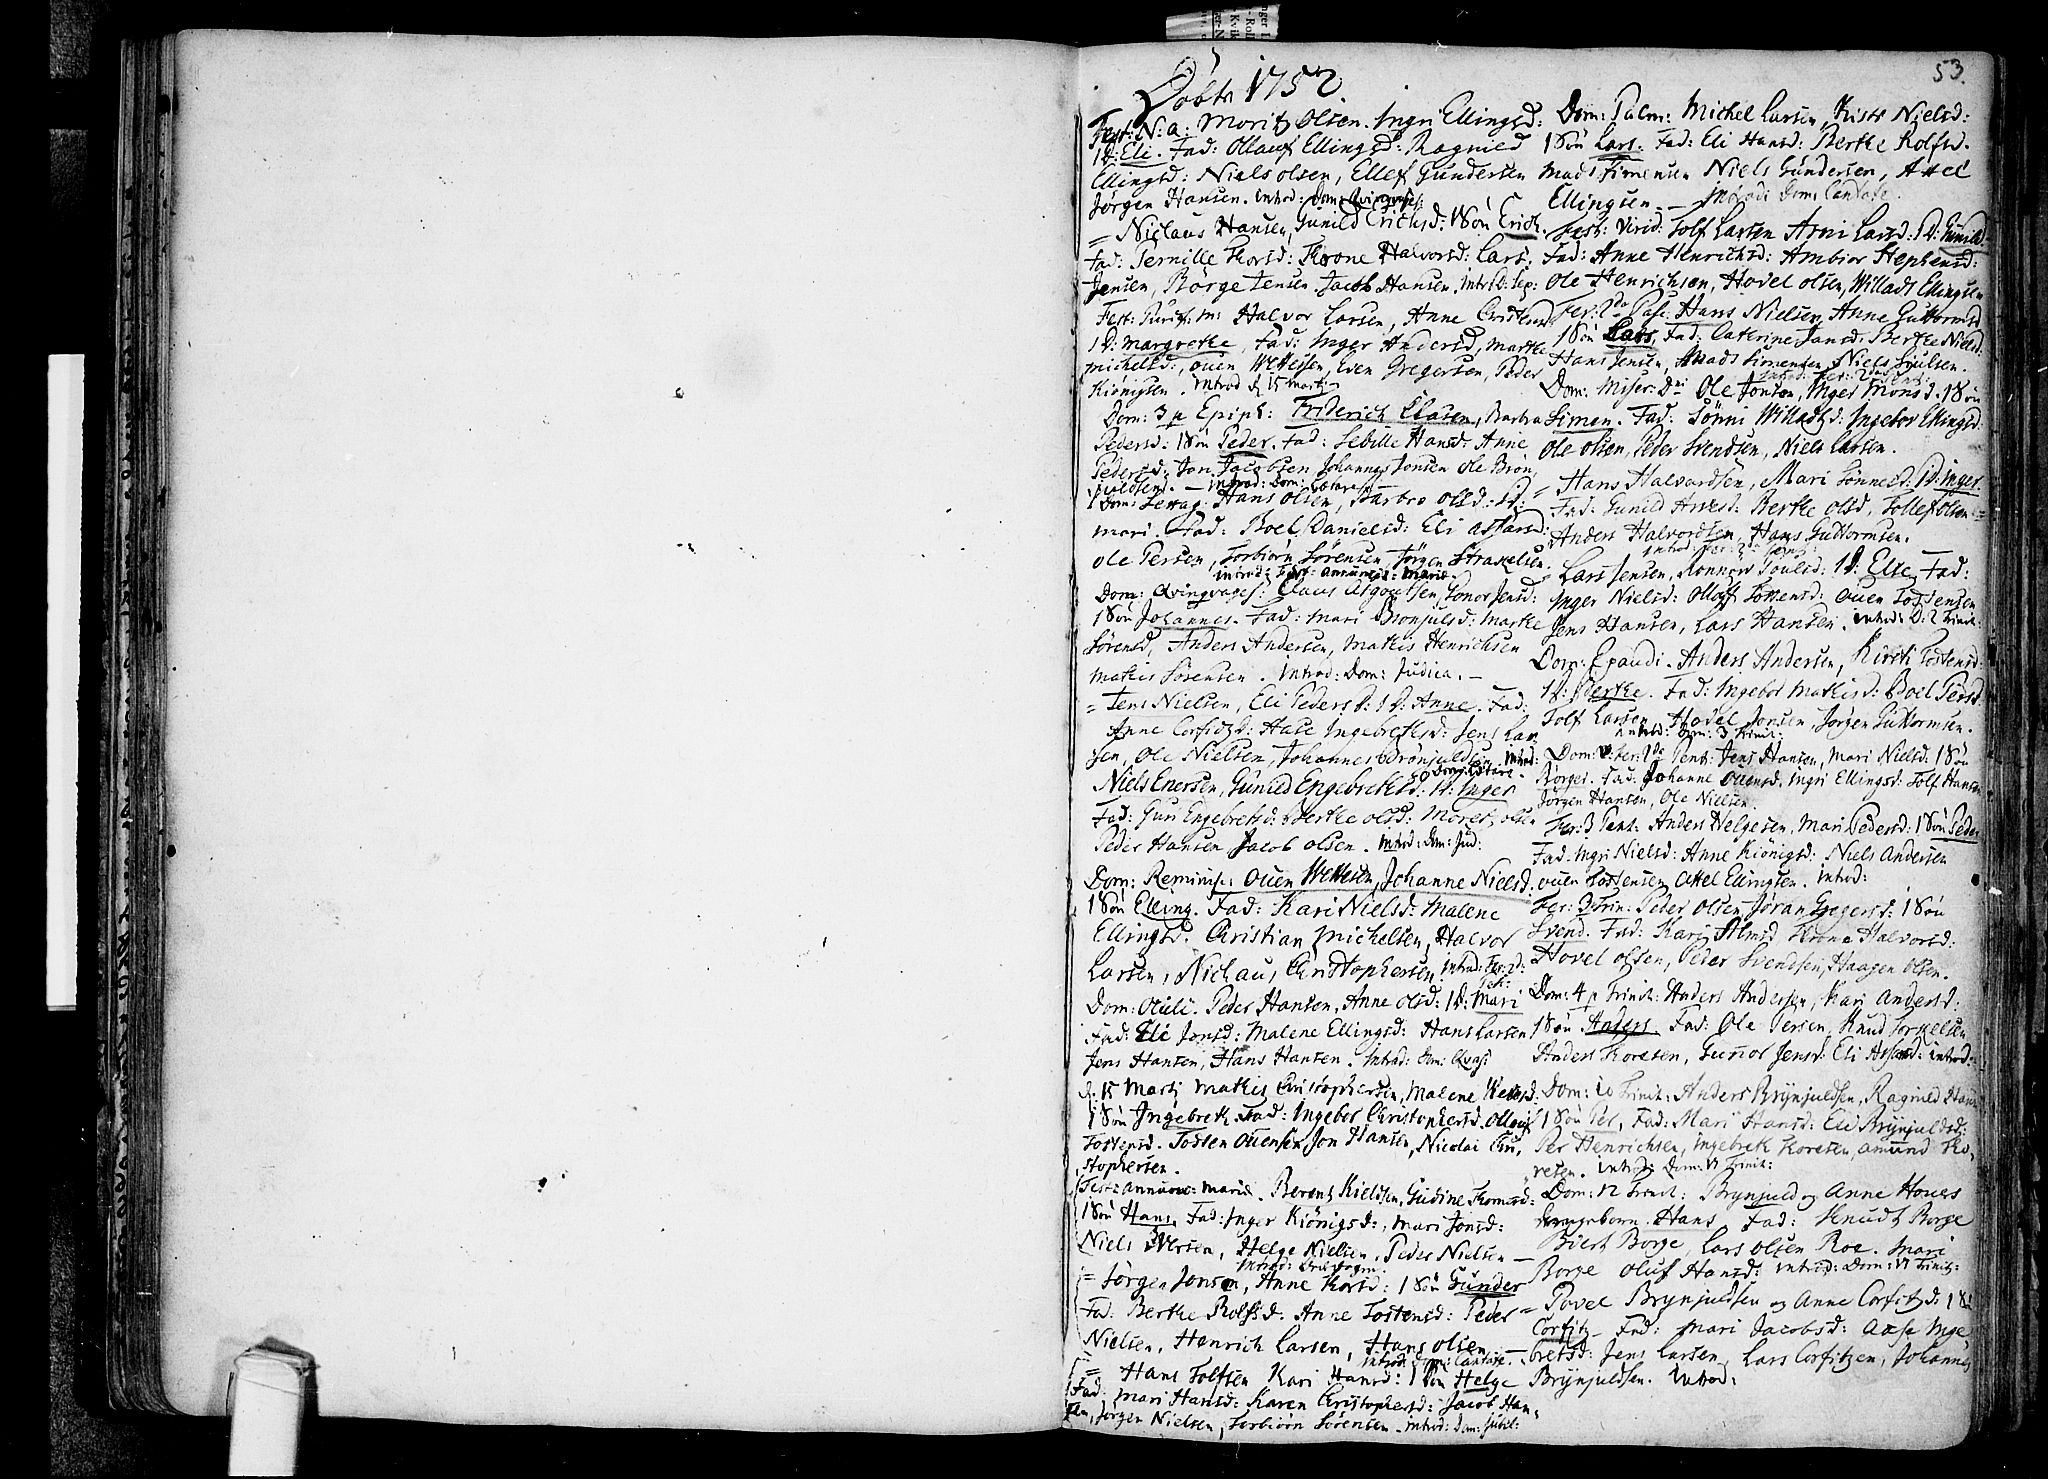 53.
Døbte 1752
Fest: N: a: Moritz Olsen. Ingri Ellingsd:
1 D: Eli. Fad: Ollauf Ellingsd: Ragnild
Ellingsd: Niels olsen, Ellef Gundersen
Jørgen Hansen. introd: Dom: Qvinqvages:
= Niclaus Hansen, Gunild Erichsd: 1 Søn Erich.
Fad: Pernille Korsd: Trone Halvorsd: Lars
Jensen, Børge Jensen. Jacob Hansen. introd: Sep:
Fest: Purif: M: Halvor Larsen, Anne Christensd:
1 D: Margrethe, Fad: Inger Andersd, Marthe
michelsd:, ouen Wettesen, Even Gregersen, Peder
Kiönigsen. introd d. 15 Marti
Dom: 3 p Epiph: Friderich Clasen, Barbra
Pedersd: 1 Søn Peder. Fad: Sebille Hansd: Anne
Pedersd: Jon Jacobsen Johannes Jonsen Ole Brön,
juldsend. — introd: Dom: Lætare
Dom: Sexag: Hans olsen, Barbro olsd: 1 D:
mari. Fad: Boel Danielsd: Eli assarsd:
ole Persen, Torbiörn Sörensen, Jörgen
introd: Fest: annunci: mariæ
Dom: Qvinqvages: Claus Asgoutsen, Gonor Jensd:
1 Søn Johannes. Fad: mari Brönjulsd: marthe
Sörensd, Anders Andersen, Mathis Henrichsen
Mathis Sörensen. introd: Dom: Judica. —
= Jens Nielsen, Eli Pedersd: 1 D: Anne. Fad:
Anne Corfitzd: Hase Ingebrethsd: Jens Lar
sen, Ole Nielsen, Johannes Brönjuldsen introd:
Dom: Lætare.
Niels Enersen, Gunild Engebrethsd: 1 D: Inger
Fad: Guri Engebretsd: Berthe olsd: Moretz olsen
Peder Hansen Jacob olsen. introd: Dom: Jud:
Dom: Reminisc: ouen Wettesen, Johanne Nielsd.
1 Søn Elling. Fad: Kari Nielsd: Malene
Ellingsd. Christian Michelsen, Halvor
Larsen, Niclau, Christophersen introd: Fer: 2d:
Dom: Oculi. Peder Hansen, Anne olsd: 1 D: Mari
Fad: Eli Jonsd: Malene Ellingsd: Hans Larsen
Jens Hansen, Hans Hansen. introd: Dom: Qvasi
d. 15 Martj Mathis Christophersen, Malene Wettesd:
1 Søn Ingebreth. Fad: Ingebor Christophersd. Ollauf
Tostensd. Tosten ouensen, Jon Hansen, Nicolai Chri,
stophersen.
Fest: annunc: mariæ. Berent Kieldsen, Gudine Thomesd:
1 Søn Hans, Fad: Inger Kiönigsd:, mari Jonsd:
Niels Iversen, Helge Nielsen. Peder Nielsen —
= Jörgen Jonsen, Anne Korsd: 1 Søn Gunder
Fad: Berthe Rolfsd. Anne Tostensd: Peder
Nielsen, Henrich Larsen, Hans olsen
introd: Dom: Cantate.
= Hans Tolfsen Kari Hansd: 1 Søn Helge
Fad: mari Hansd: Karen Christophersd: Jacob Han,
sen, Jörgen Nielsen, Torbiörn Sörensen — introd: Dom: Jubil:
Dom: Palm: Michel Larsen, Kisti Nielsd:
1 Søn Lars. Fad: Eli Hansd: Berthe Rolfsd.
Mads Simensen Niels Gundersen, Axel
Ellingsen. — introd: Dom: Cantate.
Fest: Virid: Tolf Larsen Arni Larsd: 1 D: Gunild
Fad: Anne Henrichsd: Ambior Stephensd:
Ole Henrichsen, Hovel olsen, Willads Ellingsen
Fer: 2da Pasc: Hans Nielsen Anne Guttormsd
1 Søn Lars, Fad: Catrine Jansd: Berthe Nielsd:
Hans Jensen, Mads Simensen, Niels Siulsen.
Dom: Miser: Dni Ole Jonsen, Inger Monsd: 1 Søn
Simen. Fad: Sönni Willadsd: Ingebor Ellingsd:
Ole olsen, Peder Svendsen, Niels Larsen.
= Hans Halvordsen, Mari Sönnesd: 1 D: Inger
Fad: Gunild Arnesd: Berthe olsd, Tollef olsen =
Anders Halvordsen, Hans Guttormsen.
= Lars Jensen, Ronnow Poulsd: 1 D: Else. Fad:
Inger Nielsd: Olloff Tostensd: ouen Tostensen
Jens Hansen, Lars Hansen. introd: D: 2 Trinit:
Dom: Exaudi. Anders Andersen, Kirsti Tostensd:
1 D: Berthe. Fad: Ingebor Mathisd: Boel Persd
Tolf Larsen, Hovel Jonsen Jörgen Guttormsen.
introd: Dom: 3 Trinit:
Pent: Jens Hansen, Mari Nielsd: 1 Søn
Börger. Fad: Johanne ouensd, Ingri Ellingsd: Tolf Hansen
Jörgen Hansen, Ole Nielsen.
Fer: 3 Pent: Anders Helgesen, Mari Pedersd: 1 Søn Peder
Fad: Ingri Nielsd: Anne Kiönigsd: Niels Andersen
ouen Tostensen Axel Ellingsen. introd:
Peder olsen Jöran Gregersd: 1 Søn
Svend. Fad: Kari Almsd Trone Halvorsd:
Hovel olsen, Peder Svendsen, Haagen olsen.
Dom: 4 p Trinit: Anders Andersen, Kari Andersd:
1 Søn Anders. Fad: Ole Persen, Knud Torkelsen
Anders Thoresen, Gunnor Jensd: Eli Assard: introd:
Dom: 10 Trinit: Anders Brynjuldsen, Ragnild Hansd
1 Søn Per, Fad: Mari Hansd: Eli Brynjuldsd:
Per Henrichsen, Ingebreth Thoresen, amund Tho,
resen. introd: Dom: 17 Trinit:
Dom: 12 Trinit: Brynjuld og Anne Houes
Hans Fad: Knudt Borge
Borge, Lars olsen Roe. Mari
Borge Oluf Hansd: introd: Dom: 17 Trinit:
= Povel Brynjuldsen og Anne Corfitzd: 1 Søn
Corfitz. Fad: mari Jacobsd: Aase Inge
bretsd: Jens Larsen, Lars Corfitzen, Johannes
Brynjuldsen. introd: